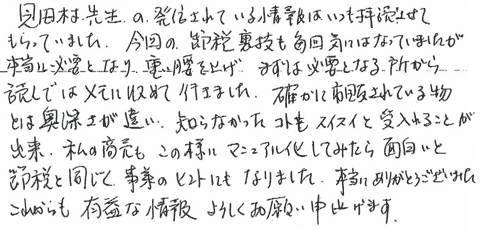 見田村先生の発信されている情報はいつも拝読させて
もらっていました。今回の節税裏技も毎回気にはなっていましたが
本当に必要となり重い腰を上げまずは必要となる所から
読んではメモに収めて行きました。確かに市販されている物
とは奥深さが違い、知らなかったコトもスイスイと受入れることが
出来、私の商売もこの様にマニュアル化してみたら面白いと
節税と同じく事業のヒントにもなりました。本当にありがとうございました
これからも有益な情報よろしくお願い申上げます。